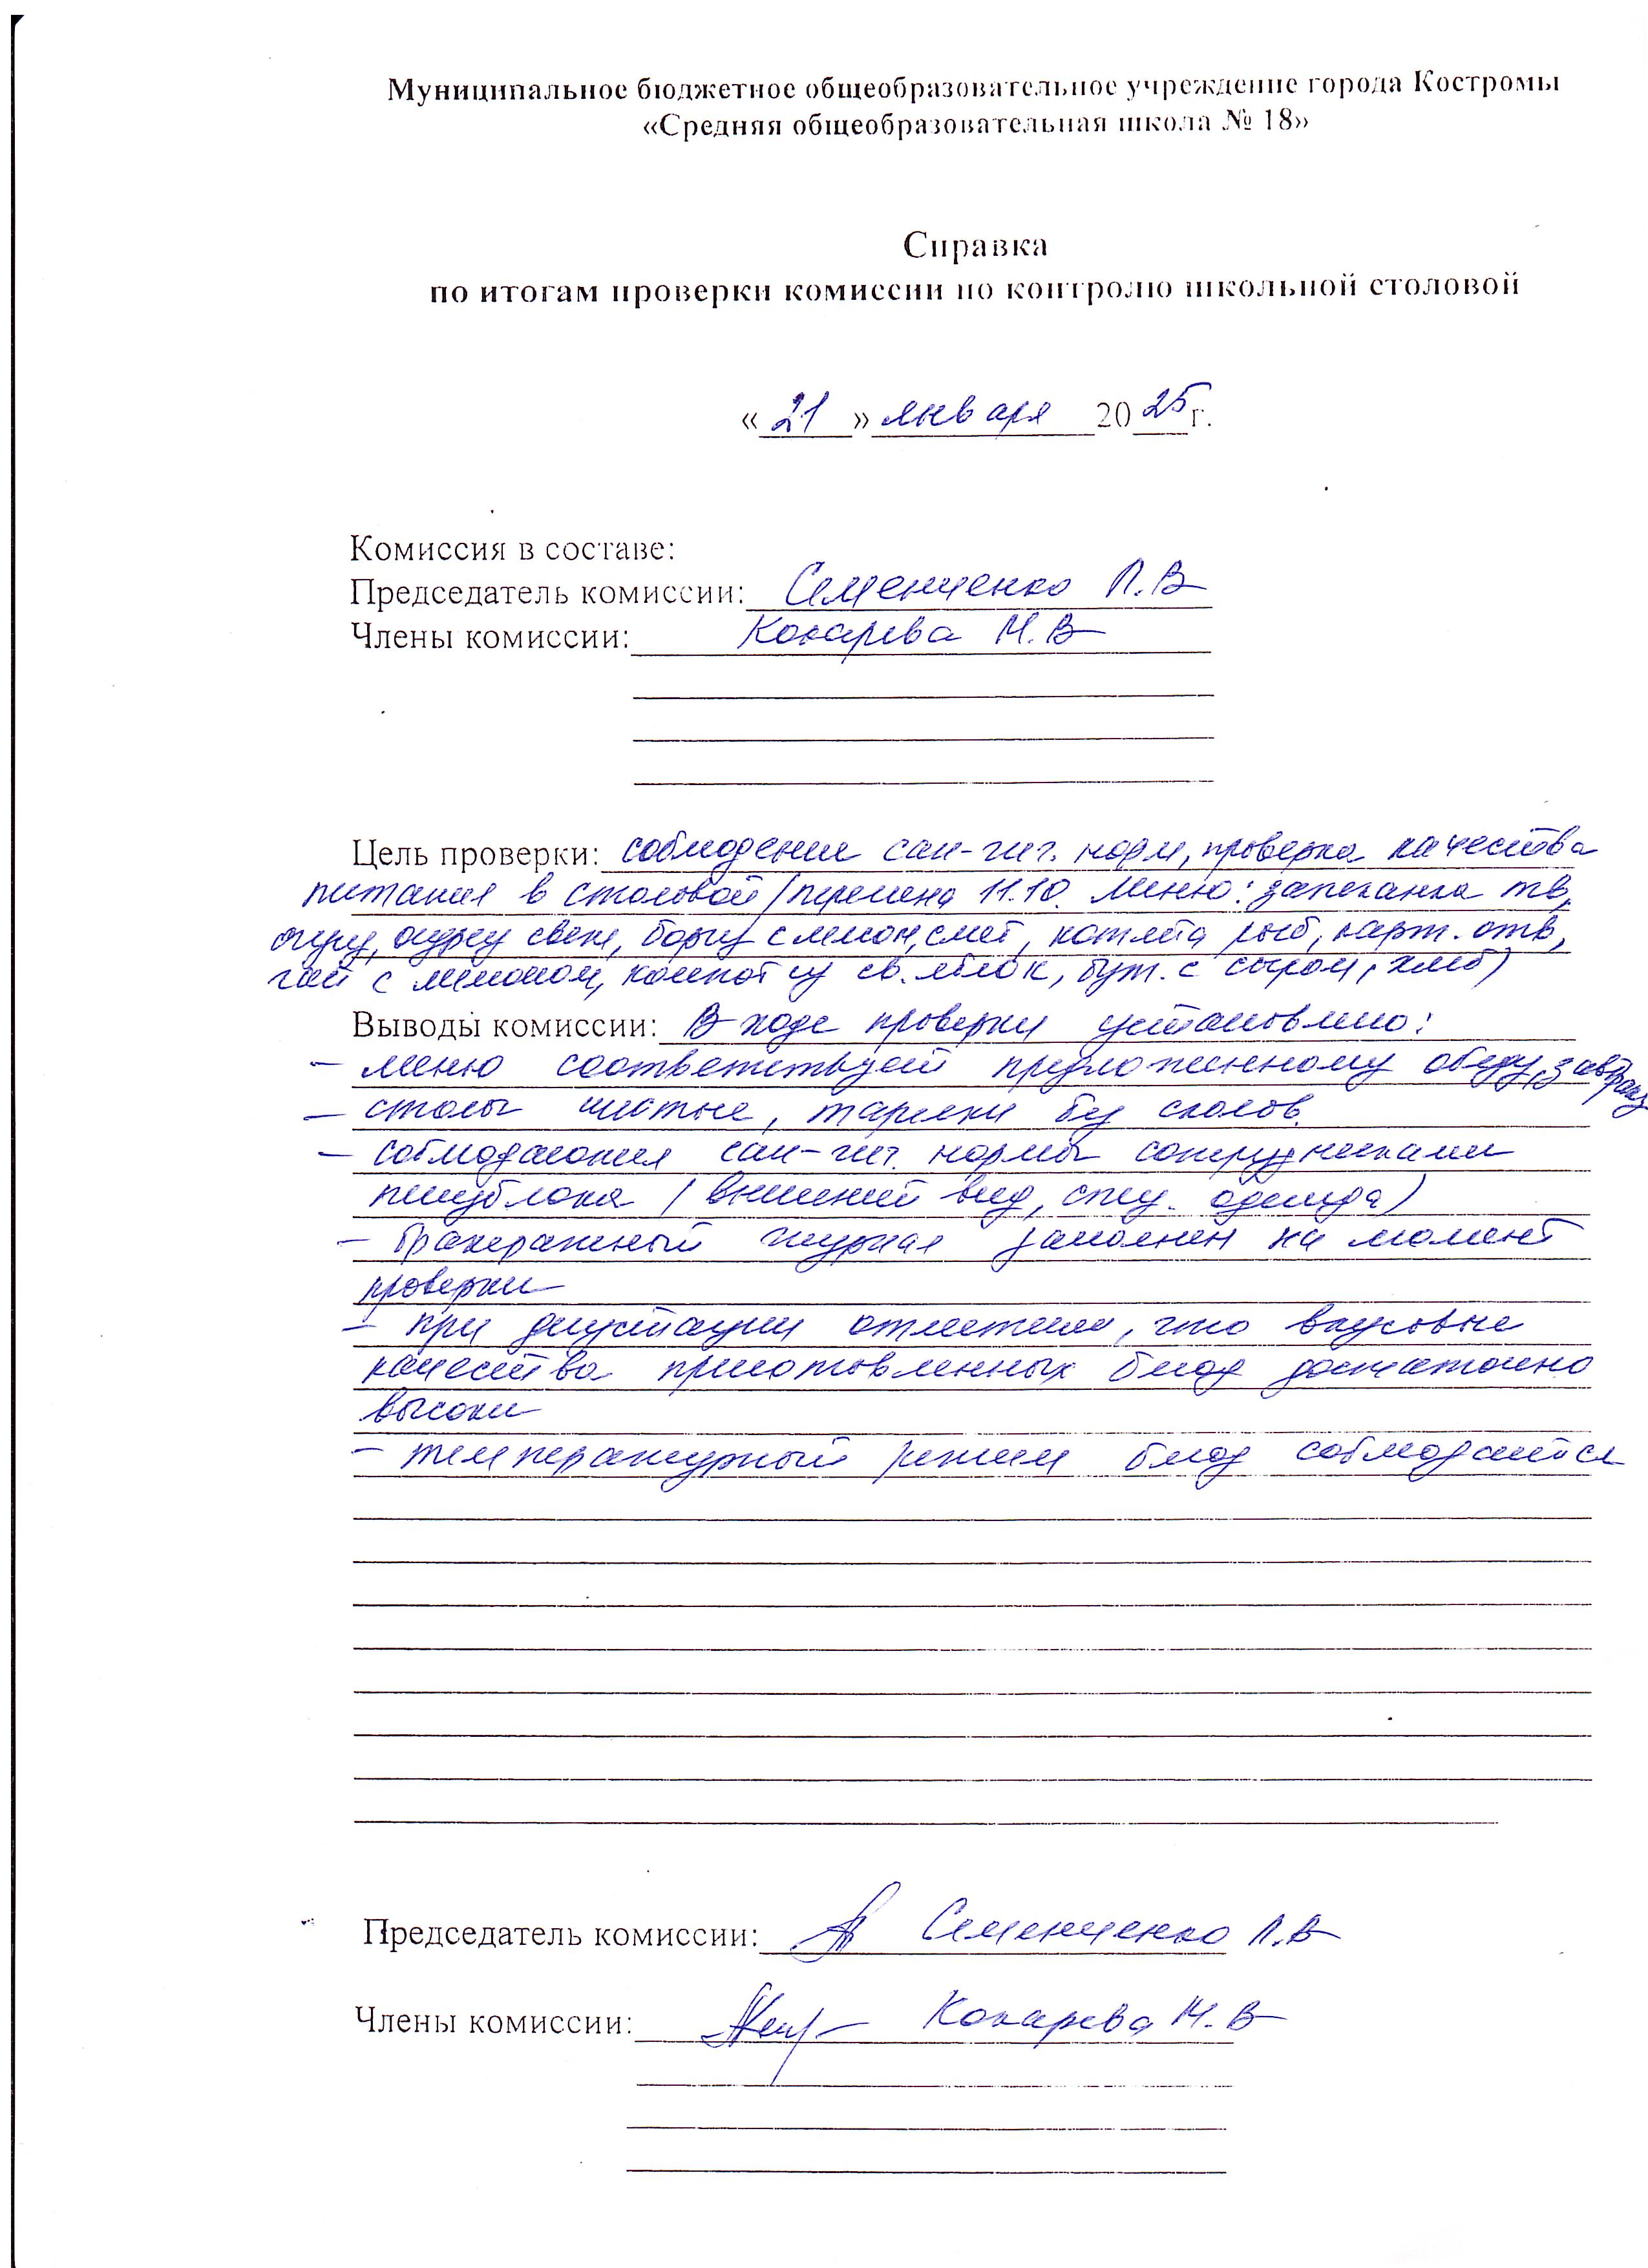 Муниципальное бюджетное общеобразовательное учреждение города Костромы
«Средняя общеобразовательная школа № 18»
Справка
по итогам проверки комиссии по контролю школьной столовой
«21» января 2025 г.
Комиссия в составе:
Председатель комиссии: Семенченко Л.В
Члены комиссии: Кокарева М.В
Цель проверки: соблюдение сан-гиг. норм, проверка качества
питания в столовой (перемена 11.10. Меню: запеканка тв,
огурец свеж, борщ с смет, котлета рыб, карт. отв,
чай с лимоном, компот из св. яблок, бут. с сыром, хлеб)
Выводы комиссии: В ходе проверки установлено:
- меню соответствует предложенному обеду, завтраку
- столы чистые, тарелки без сколов.
- соблюдаются сан-гиг. нормы сотрудниками
пищеблока (внешний вид, спец. одежда)
- бракеражный журнал заполнен на момент
проверки
- при дегустации отметили, что вкусовые
качества приготовленных блюд достаточно
высоки
- температурный режим блюд соблюдается
Председатель комиссии: Семенченко Л.В
Члены комиссии: Кокарева М.В